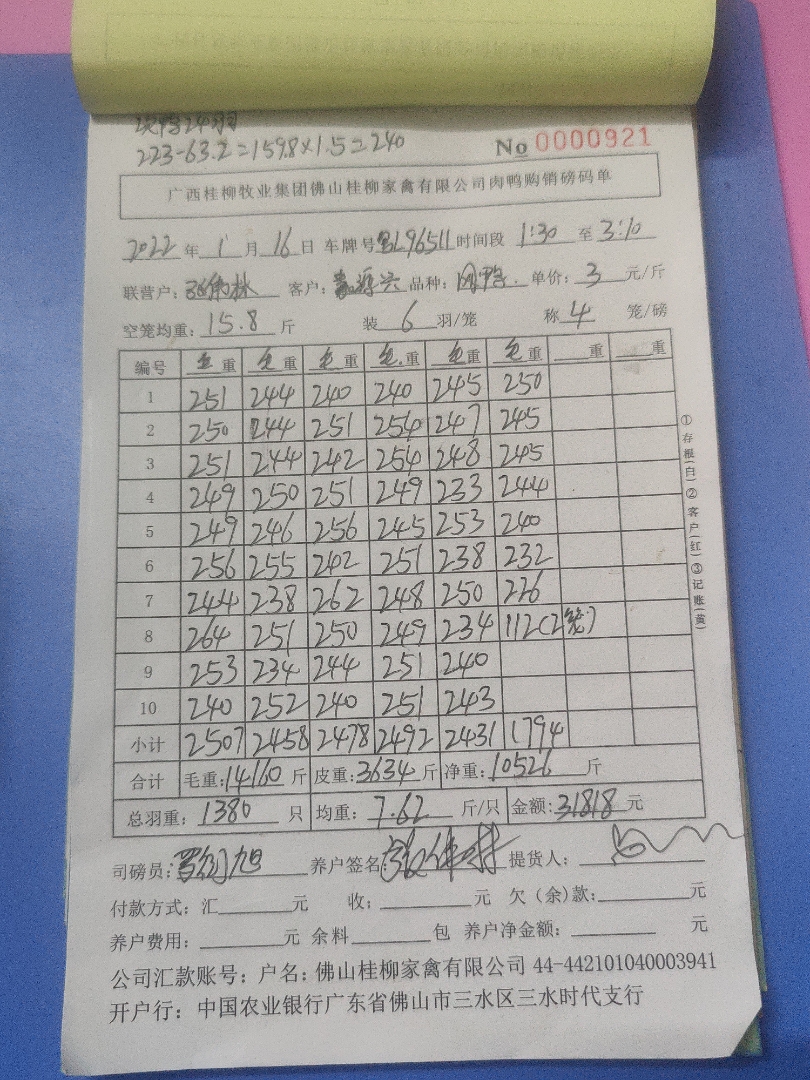 次鸭24羽
223-63.2=159.8×1.5=240
No 0000921
广西桂柳牧业集团佛山桂柳家禽有限公司肉鸭购销磅码单
2022年1月16日 车牌号 L96511 时间段 1:30 至 3:10
联营户: 客户: 品种: 单价: 3 元/斤
空笼均重: 15.8 斤 装 6 羽/笼 称 4 笼/磅
编号 毛重 毛重 毛重 毛重 毛重 毛重 重 重
1 251 244 240 240 245 250
2 250 244 251 254 247 245
3 251 244 242 254 248 245
4 249 250 251 249 233 244
5 249 246 256 245 253 240
6 256 255 242 251 238 232
7 244 238 262 248 250 226
8 264 251 250 249 234 112(2笼)
9 253 234 244 251 240
10 240 252 240 251 243
小计 2507 2458 2478 2492 2431 1794
合计 毛重:14160斤 皮重:3634斤 净重:10526斤
总羽重: 1380 只 均重: 7.62 斤/只 金额: 31818 元
司磅员: 养户签名: 提货人:
付款方式: 汇 元 收: 元 欠(余)款: 元
养户费用: 元 余料 包 养户净金额: 元
公司汇款账号: 户名: 佛山桂柳家禽有限公司 44-442101040003941
开户行: 中国农业银行广东省佛山市三水区三水时代支行
①存根(白)②客户(红)③记账(黄)